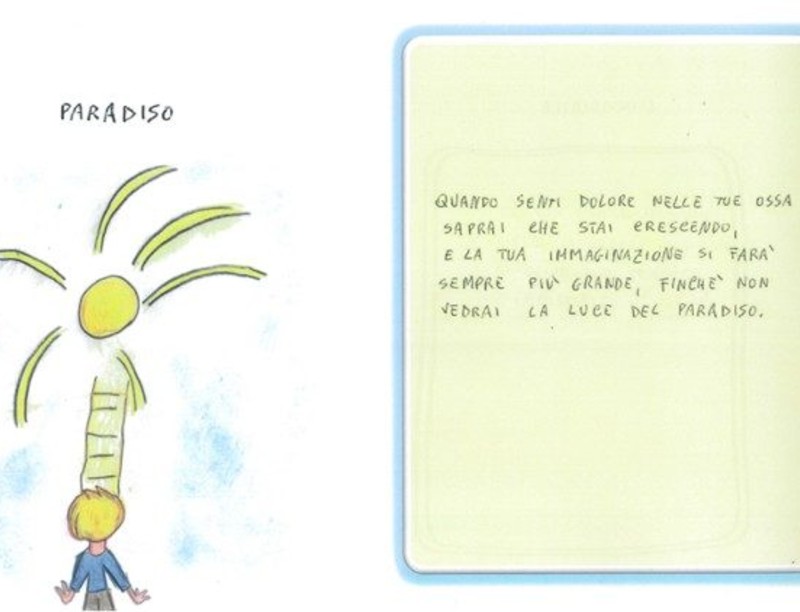 PARADISO
QUANDO SENTI DOLORE NELLE TUE OSSA
SAPRAI CHE STAI CRESCENDO,
E LA TUA IMMAGINAZIONE SI FARA'
SEMPRE PIU' GRANDE, FINCHE' NON
VEDRAI LA LUCE DEL PARADISO.